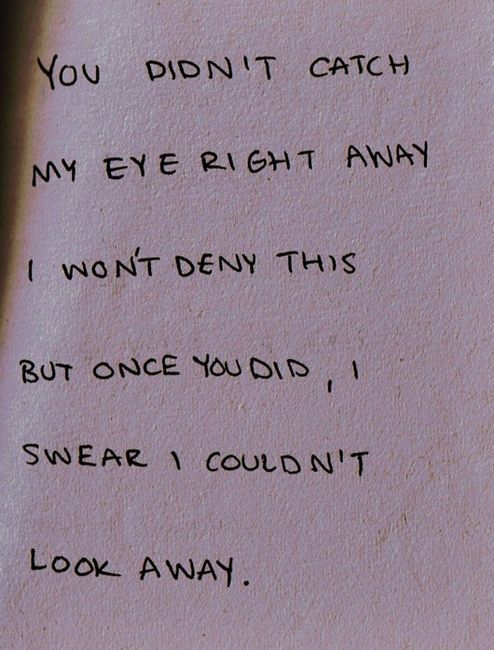 YOU DIDN'T CATCH
MY EYE RIGHT AWAY
I WON'T DENY THIS
BUT ONCE YOU DID, I
SWEAR I COULDN'T
LOOK AWAY.